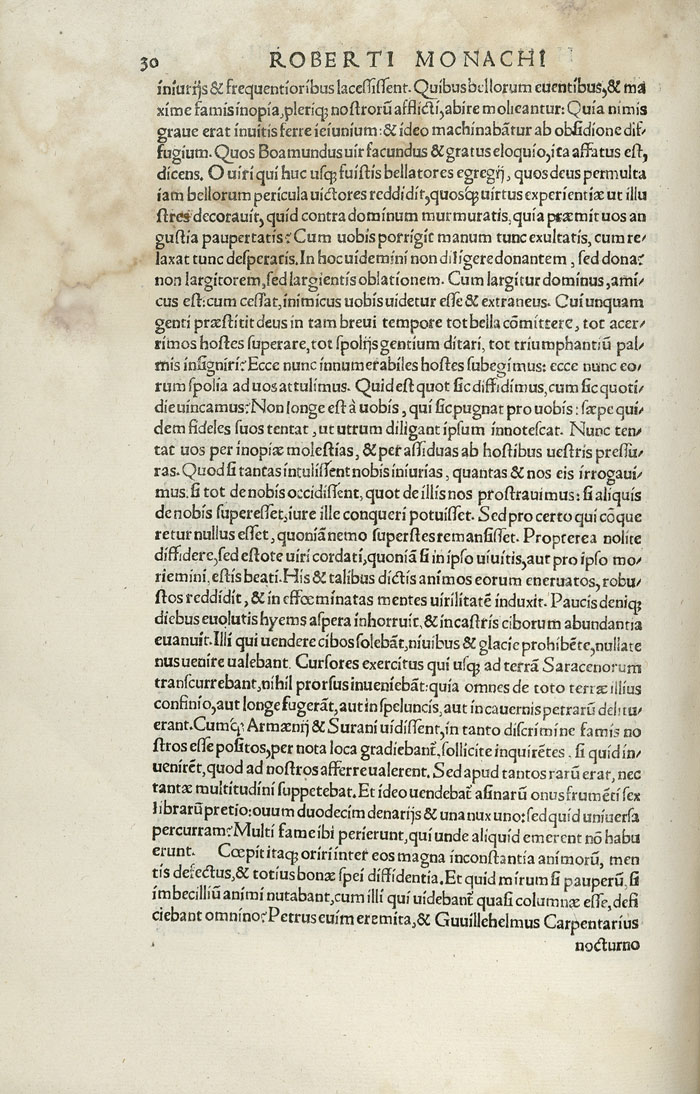 30 ROBERTI MONACHI
iniurijs & frequentioribus lacessissent. Quibus bellorum euentibus, & ma
xime famis inopia, pleriq; nostrorū afflicti, abire moliebantur: Quia nimis
graue erat inuitis ferre ieiunium: & ideo machinabātur ab obsidione dif-
fugium. Quos Boamundus uir facundus & gratus eloquio, ita affatus est,
dicens. O uiri qui huc usq; fuistis bellatores egregij, quos deus permulta
iam bellorum pericula uictores reddidit, quosq; uirtus experientiæ ut illu
stres decorauit, quid contra dominum murmuratis, quia præmit uos an
gustia paupertatis? Cum uobis porrigit manum tunc exultatis, cum re-
laxat tunc desperatis. In hoc uidemini non diligere donantem, sed dona:
non largitorem, sed largientis oblationem. Cum largitur dominus, ami-
cus est: cum cessat, inimicus uobis uidetur esse & extraneus. Cui unquam
genti præstitit deus in tam breui tempore tot bella cōmittere, tot acer-
rimos hostes superare, tot spolijs gentium ditari, tot triumphantiū pal-
mis insigniri? Ecce nunc innumerabiles hostes subegimus: ecce nunc eo-
rum spolia ad uos attulimus. Quid est quot sic diffidimus, cum sic quoti-
die uincamus? Non longe est à uobis, qui sic pugnat pro uobis: sæpe qui-
dem fideles suos tentat, ut utrum diligant ipsum innotescat. Nunc ten-
tat uos per inopiæ molestias, & per assiduas ab hostibus uestris pressu-
ras. Quod si tantas intulissent nobis iniurias, quantas & nos eis irrogaui-
mus, si tot de nobis occidissent, quot de illis nos prostrauimus: si aliquis
de nobis superesset, iure ille conqueri potuisset. Sed pro certo qui cōque
retur nullus esset, quoniā nemo superstes remansisset. Propterea nolite
diffidere, sed estote uiri cordati, quoniā si in ipso uiuitis, aut pro ipso mo-
riemini, estis beati. His & talibus dictis animos eorum eneruatos, robu-
stos reddidit, & in effœminatas mentes uirilitatē induxit. Paucis deniq;
diebus euolutis hyems aspera inhorruit, & in castris ciborum abundantia
euanuit. Illi qui uendere cibos solebāt, niuibus & glacie prohibēte, nullate
nus uenire ualebant. Cursores exercitus qui usq; ad terrā Saracenorum
transcurrebant, nihil prorsus inueniebāt: quia omnes de toto terræ illius
confinio, aut longe fugerāt, aut in speluncis, aut in cauernis petrarū delitu-
erant. Cumq; Armænij & Surani uidissent, in tanto discrimine famis no
stros esse positos, per nota loca gradiebant̄, sollicite inquirētes, si quid in-
uenirēt, quod ad nostros afferre ualerent. Sed apud tantos rarū erat, nec
tantæ multitudini suppetebat. Et ideo uendebat̄ asinarū onus frumēti sex
librarū pretio: ouum duodecim denarijs & una nux uno: sed quid uniuersa
percurram? Multi fame ibi perierunt, qui unde aliquid emerent nō habu
erunt. Cœpit itaq; oriri inter eos magna inconstantia animorū, men
tis defectus, & totius bonæ spei diffidentia. Et quid mirum si pauperū, si
imbecilliū animi nutabant, cum illi qui uidebant̄ quasi columnæ esse, defi
ciebant omnino? Petrus euim eremita, & Guuillehelmus Carpentarius
nocturno